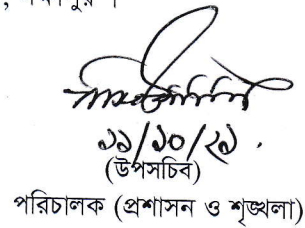 ১১/১০/২১
(উপসচিব)
পরিচালক (প্রশাসন ও শৃঙ্খলা)